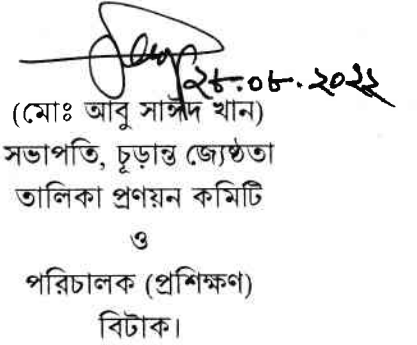 ২৮.০৮.২০২২
(মোঃ আবু সাঈদ খান)
সভাপতি, চূড়ান্ত জ্যেষ্ঠতা
তালিকা প্রণয়ন কমিটি
ও
পরিচালক (প্রশিক্ষণ)
বিটাক।